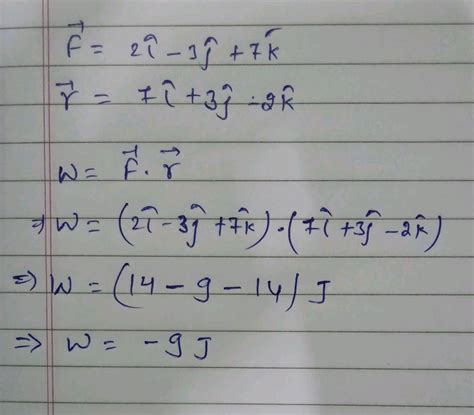 F⃗ = 2î - 3ĵ + 7k̂
r⃗ = 7î + 3ĵ - 2k̂
W = F⃗ . r⃗
⇒ W = (2î - 3ĵ + 7k̂) · (7î + 3ĵ - 2k̂)
⇒ W = (14 - 9 - 14) J
⇒ W = -9 J